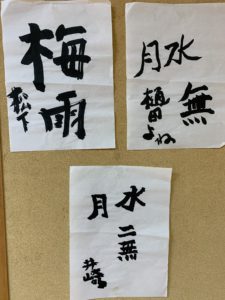 梅雨
松下
水無
月
植田よね
水無
月
井崎